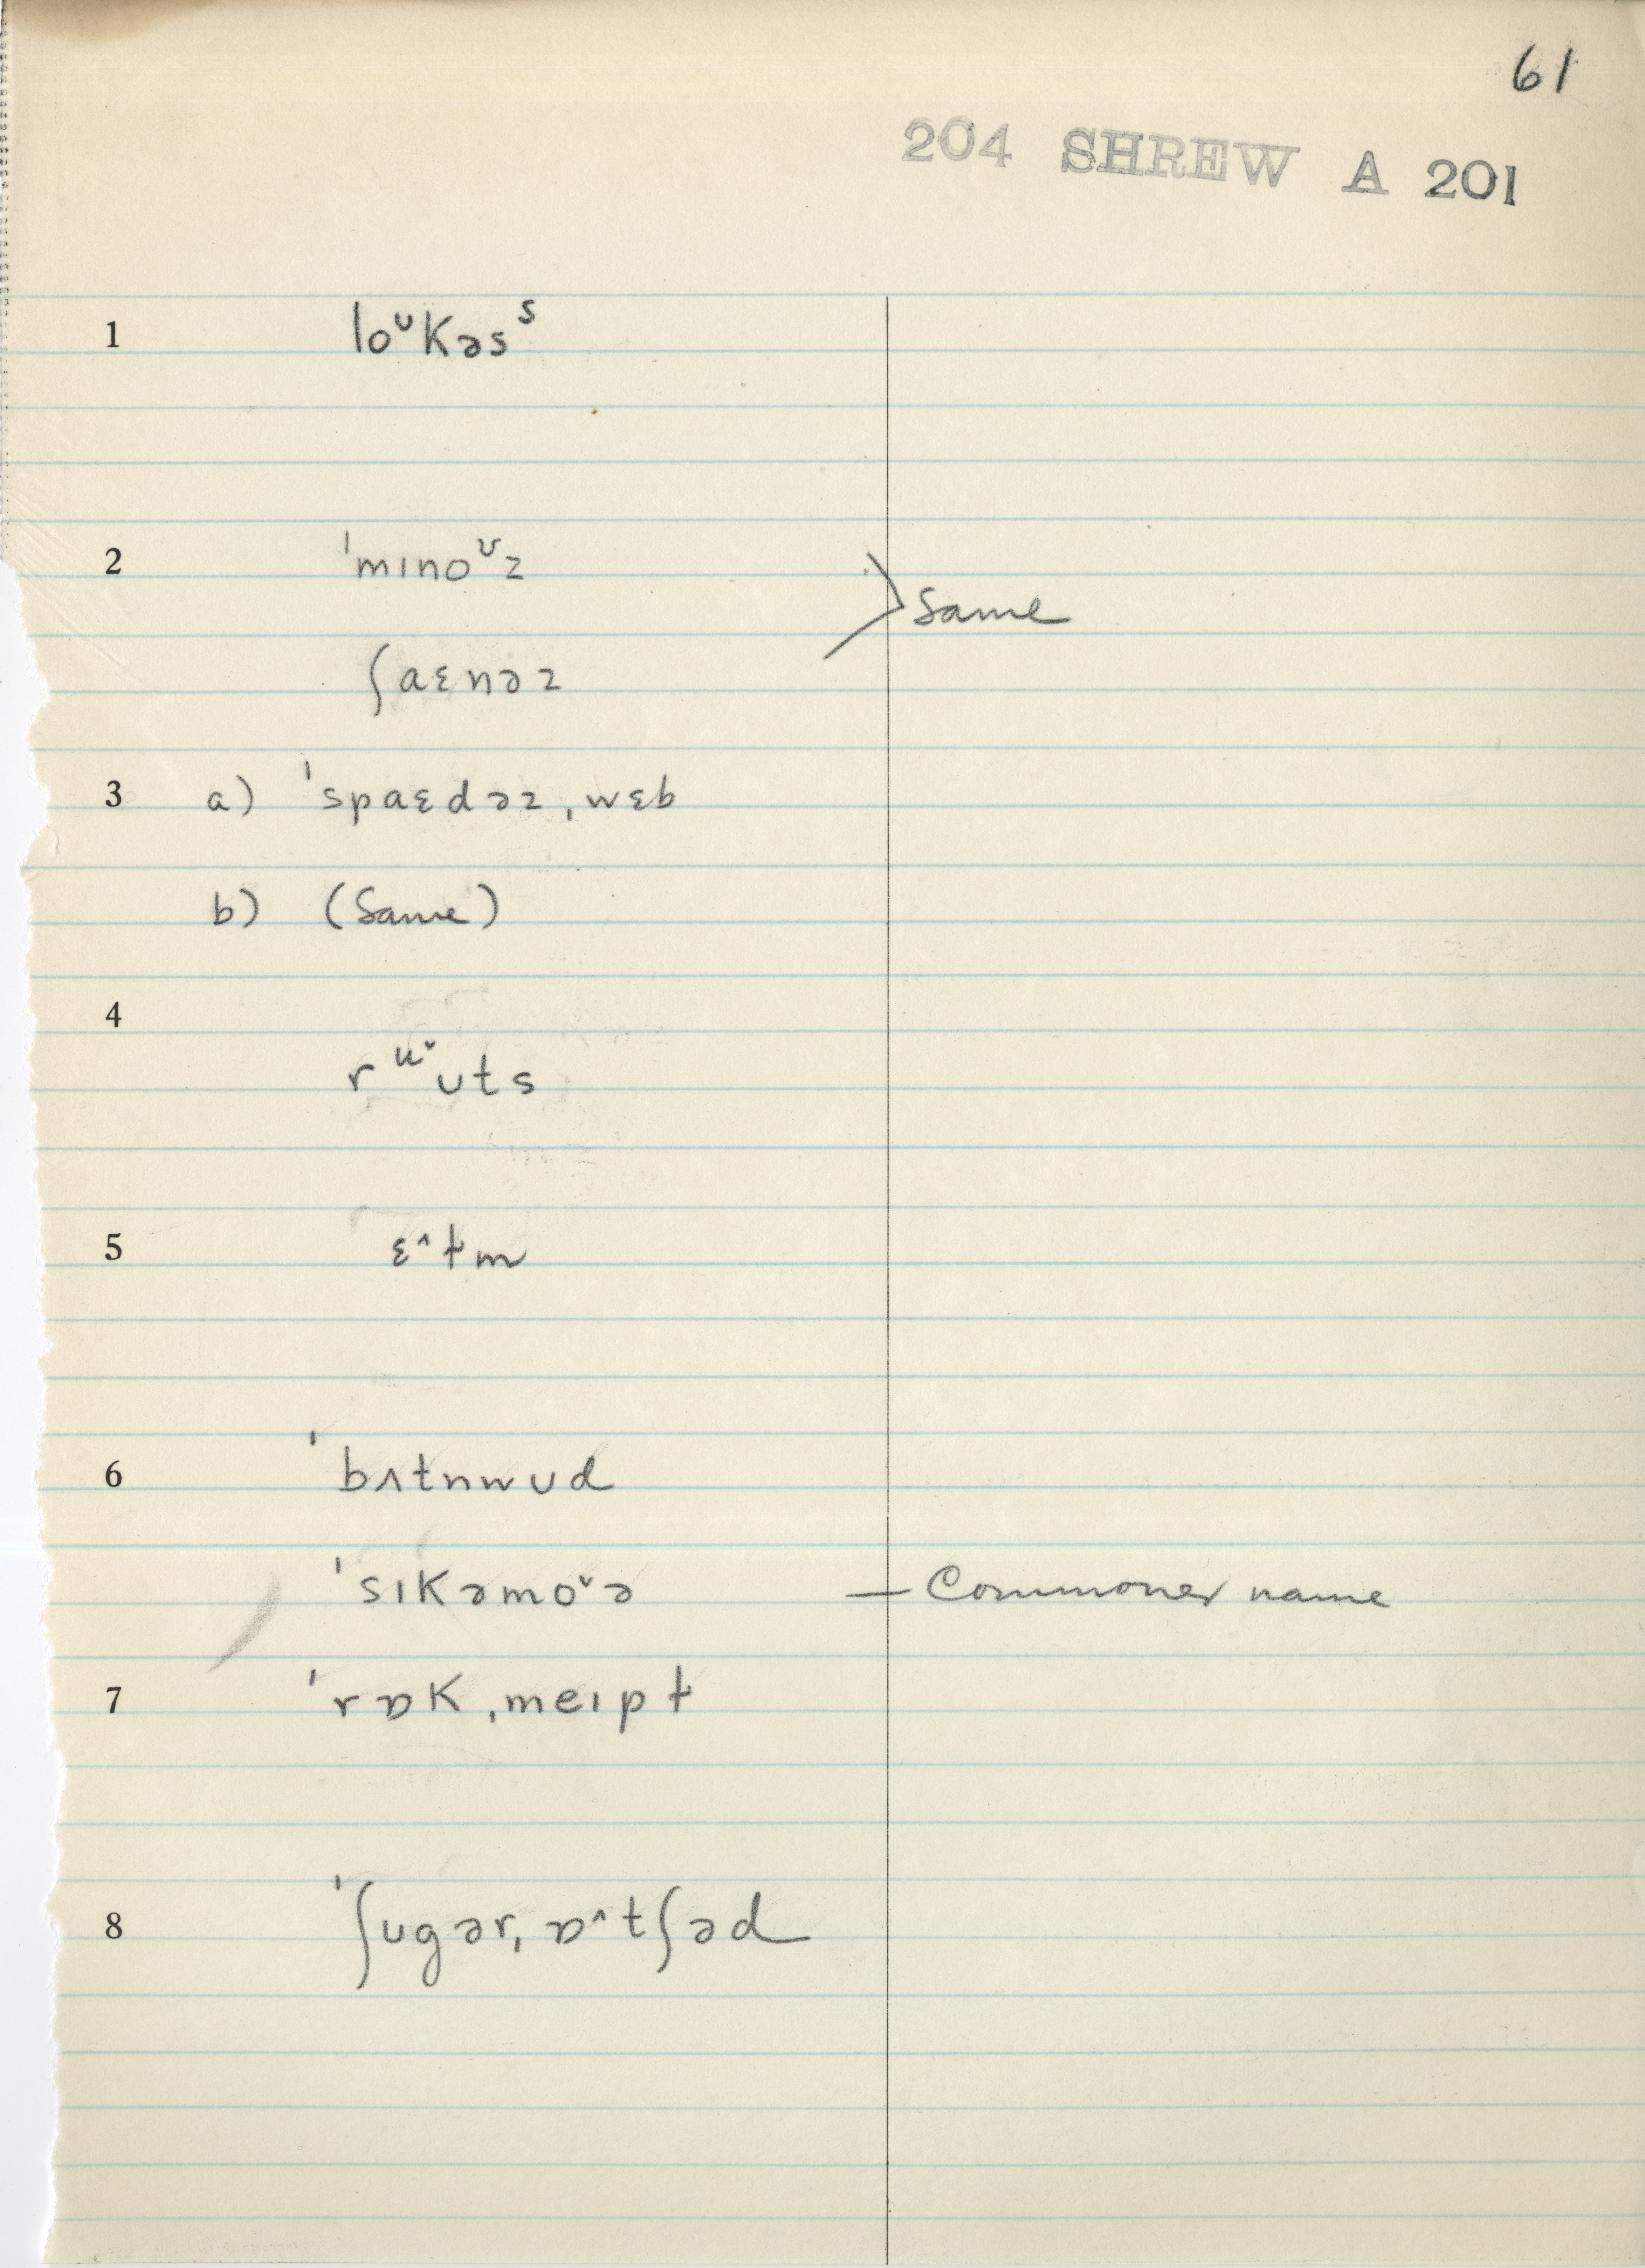 61
204 SHREW A 201
1 loᶷkəsˢ
2 ˈmɪnoᶷz
Same
ʃaɛnəz
3 a) ˈspaɛdəzˌwɛb
b) (Same)
4 rᵘ˅ʊts
5 ɛ^ɫm
6 ˈbʌtnwʊd
ˈsɪkəmo˅ə — Commoner name
7 ˈrɒkˌmeɪpɫ
8 ˈʃʊgərˌɒ^tʃəd